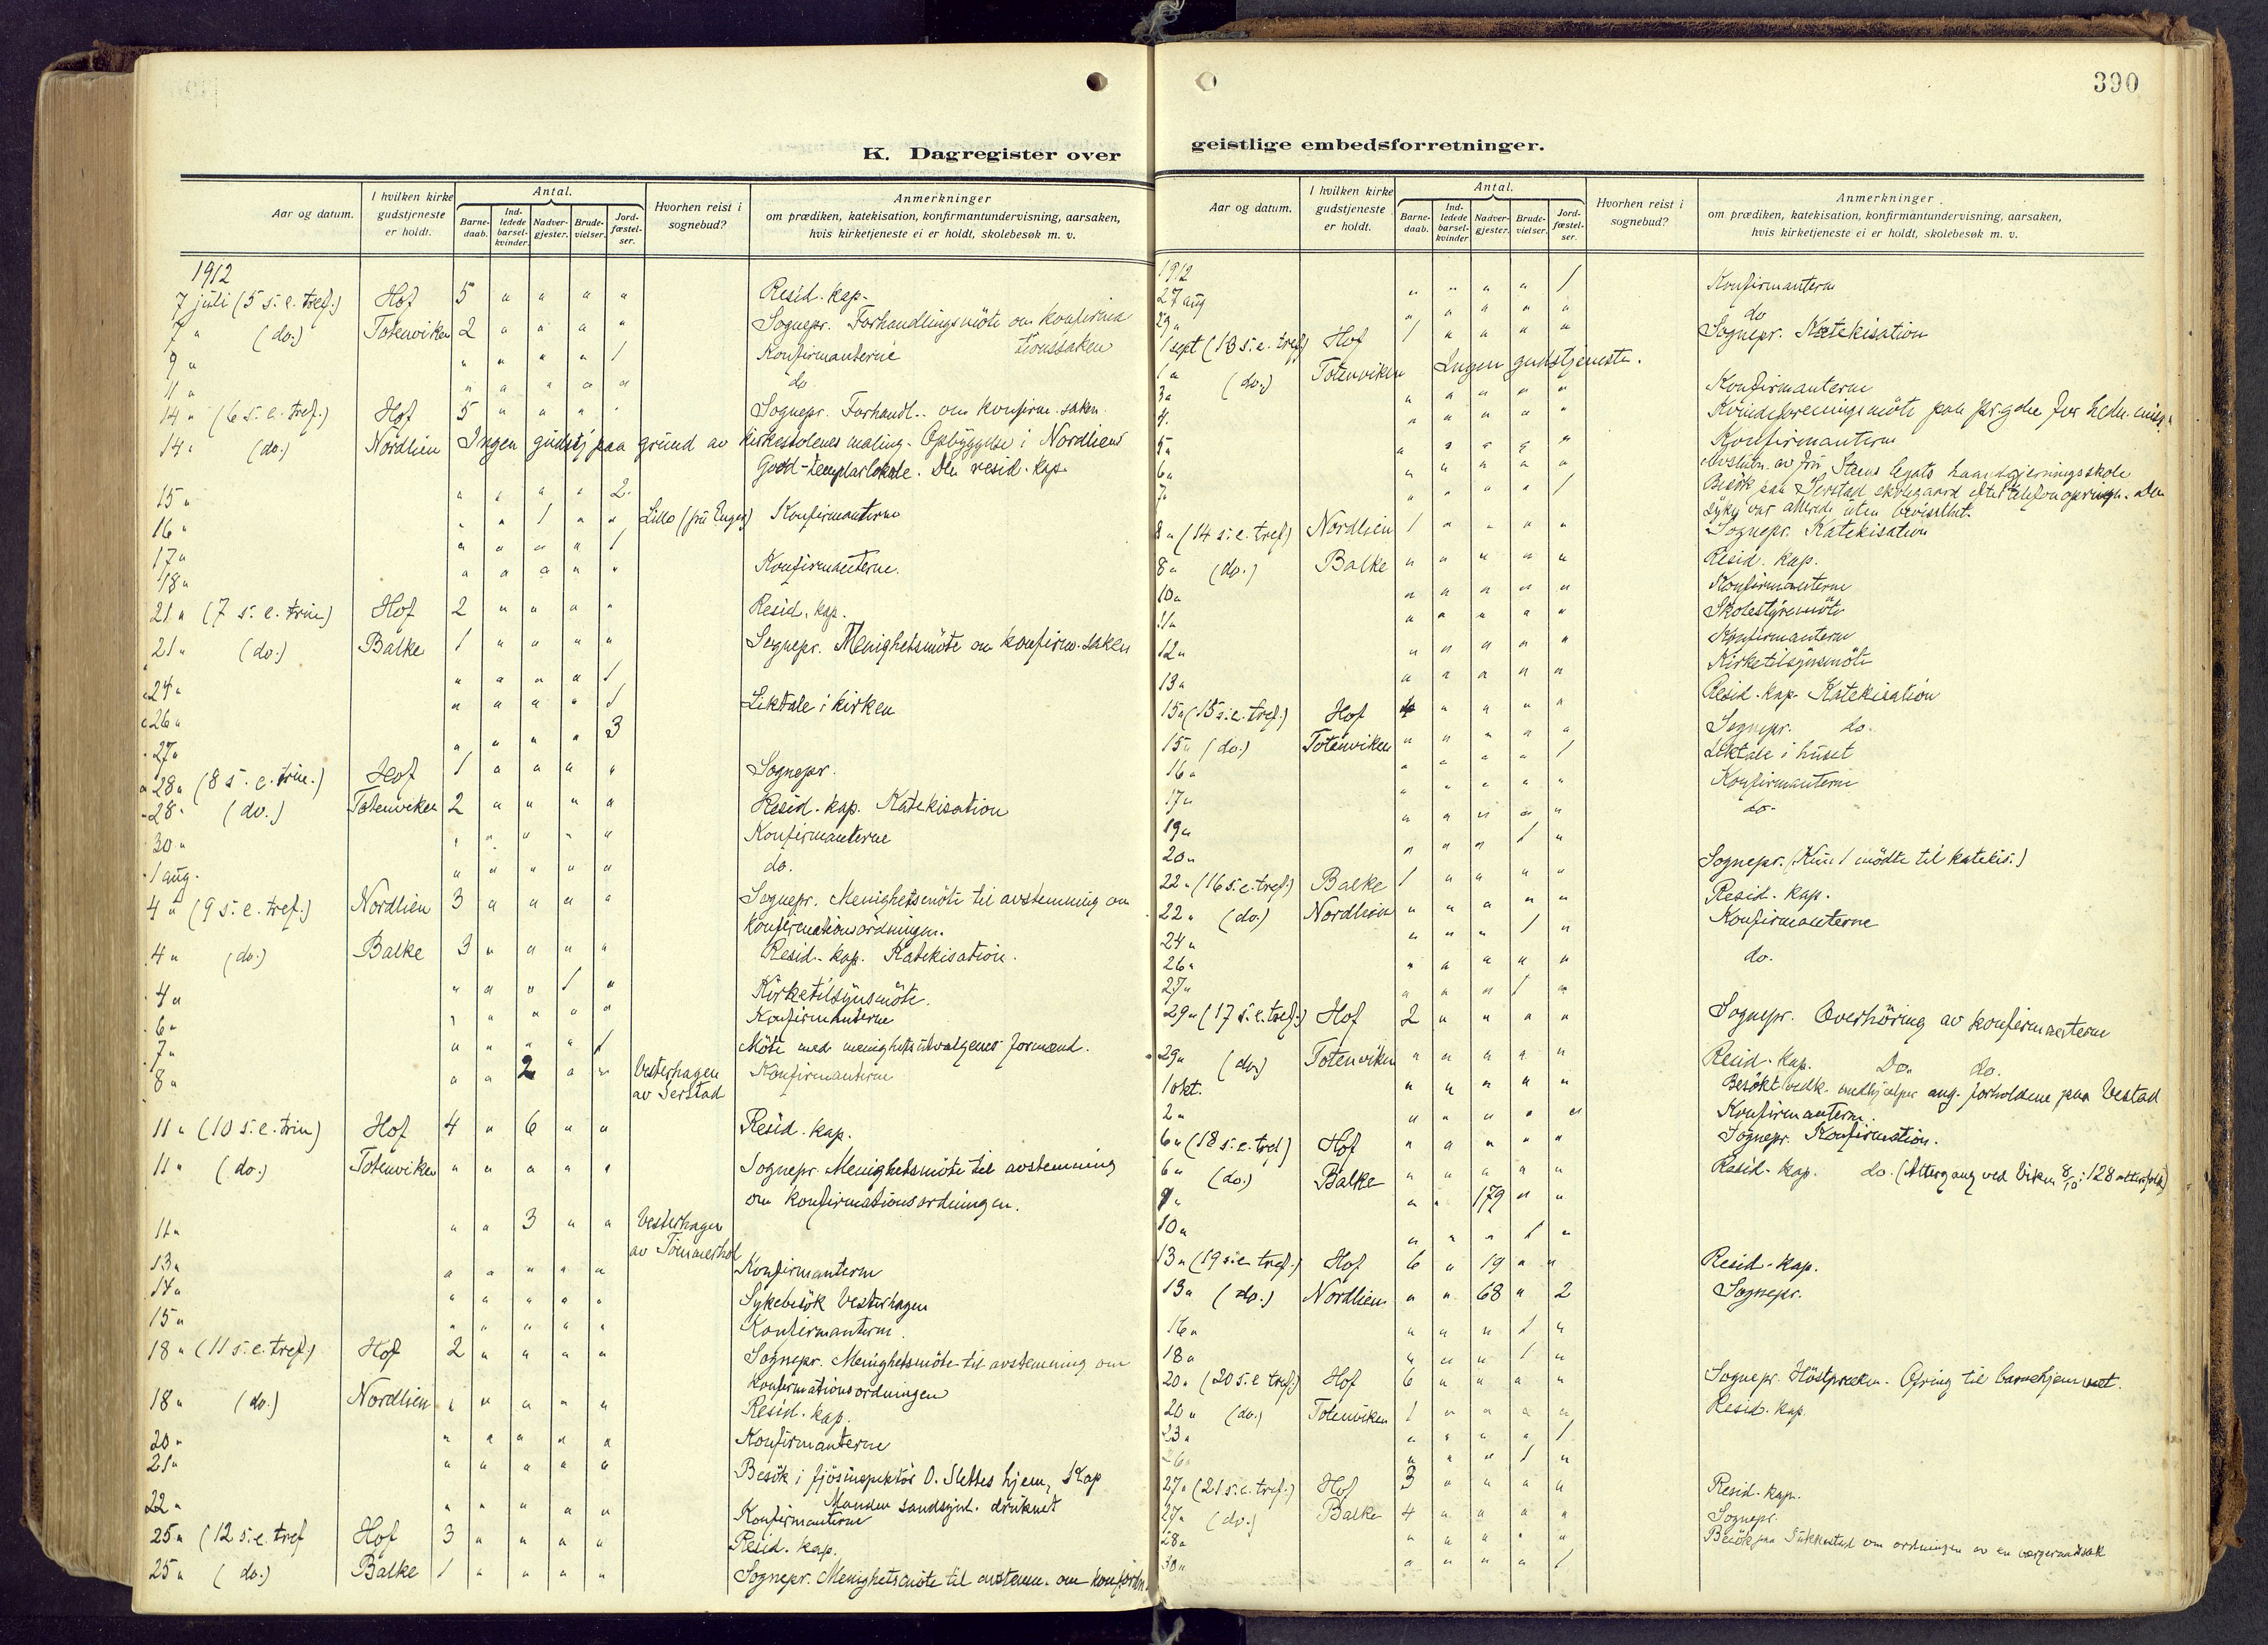 390
K. Dagregister over
geistlige embedsforretninger.
Aar og datum.
I hvilken kirke gudstjeneste er holdt.
Antal.
Barne-daab.
Ind-ledede barsel-kvinder.
Nadver-gjester.
Brude-vielser.
Jord-fæstel-ser.
Hvorhen reist i sognebud?
Anmerkninger
om prædiken, katekisation, konfirmantundervisning, aarsaken,
hvis kirketjeneste ei er holdt, skolebesøk m. v.
1912
7 juli (5 s. e. tref.) Hof 5 " " " " Resid. kap.
7 " (do.) Totenviken 2 " " " " Sognepr. Forhandlingsmöte om konfirma
tionssaken
9 " " " " " 1 Konfirmanterne
11 " " " " " " do
14 " (6 s. e. tref.) Hof 5 " " " " Sognepr. Forhandl. om konfirm. saken
14 " (do.) Nordlien Ingen gudstj paa grund av kirkestolenes maling. Opbyggelse i Nordliens
Good-templarlokale. Den resid. kap.
15 " " " " " 2
16 " " " 1 " " Lillo (fru Enger) Konfirmanterne
17 " " " " " 1
18 " " " " " " Konfirmanterne.
21 " (7 s. e. trin) Hof 2 " " " " Resid. kap.
21 " (do.) Balke 1 " " " " Sognepr. Menighetsmöte om konfirm. saken
24 " " " " " 1
26 " " " " " 1 Liktale i kirken
27 " " " " " 3
28 " (8 s. e. trin.) Hof 1 " " " " Sognepr.
28 " (do.) Totenviken 2 " " " " Resid. kap. Katekisation
30 " " " " " " Konfirmanterne
1 aug. " " " " " do.
4 " (9 s. e. tref.) Nordlien 3 " " " " Sognepr. Menighetsmöte til avstemning om
konfirmationsordningen.
4 " (do.) Balke 3 " " " " Resid. kap. Katekisation.
4 " " " " 1 " Kirketilsynsmöte.
6 " " " " " " Konfirmanterne
7 " " " " " 1 Möte med menighetsutvalgenes formænd.
8 " " " 2 " " Vesterhagen Konfirmanterne
av Serstad
11 " (10 s. e. trin) Hof 4 " 6 " " Resid. kap.
11 " (do.) Totenviken " " " " " Sognepr. Menighetsmöte til avstemning
om konfirmationsordningen.
11 " " " 3 " " Vesterhagen
av Tömmerhol
13 " " " " " " Konfirmanterne
14 " " " " " " Sykebesök Vesterhagen
15 " " " " " " Konfirmanterne.
18 " (11 s. e. tref.) Hof 2 " " " " Sognepr. Menighetsmöte til avstemning om
konfirmationsordningen
18 " (do.) Nordlien " " " " " Resid. kap.
20 " " " " " " Konfirmanterne
21 " " " " " " Besök i fjösinspektör O. Slettes hjem, Kap
Manden sandsynl. druknet
22 " " " " " " Konfirmanterne
25 " (12 s. e. tref Hof 3 " " " " Resid. kap.
25 " (do.) Balke 1 " " " " Sognepr. Menighetsmöte til avstemn. om konf.ordn.
Aar og datum.
I hvilken kirke gudstjeneste er holdt.
Antal.
Barne-daab.
Ind-ledede barsel-kvinder
Nadver-gjester.
Brude-vielser.
Jord-fæstel-ser.
Hvorhen reist i sognebud?
Anmerkninger
om prædiken, katekisation, konfirmantundervisning, aarsaken,
hvis kirketjeneste ei er holdt, skolebesøk m. v.
1912
27 aug " " " " 1 Konfirmanterne
29 " " " " " " do
1 sept (13 s. e. tref) Hof 1 " " " " Sognepr. Katekisation
1 " (do.) Totenviken Ingen gudstjeneste.
3 " " " " " " Konfirmanterne
4 " " " " " " Kvindeforeningsmöte paa pr.gden for hedn. miss.
5 " " " " " " Konfirmanterne
6 " " " " " " Avslutn. av fru Steens legats haandgjerningsskole
7 " " " " " 1 Besök paa Serstad efter telefonopringn. Den
syke var allerede uten bevissthet.
8 " (14 s. e. tref) Nordlien 1 " " " " Sognepr. Katekisation
8 " (do.) Balke " " " " " Resid. kap.
10 " " " " " " Konfirmanterne
11 " " " " " " Skolestyremöte
12 " " " " " " Konfirmanterne
13 " " " " " " Kirketilsynsmöte
15 " (15 s. e. tref.) Hof " " " " Resid. kap. Katekisation
15 " (do.) Totenviken " " " " " Sognepr. do.
16 " " " " " 1 Liktale i huset
17 " " " " " " Konfirmanterne
19 " " " " " " do.
20 " " " " 1 "
22 " (16 s. e. tref.) Balke 1 " " " " Sognepr. (Kun 1 mödte til katekis.)
22 " (do.) Nordlien " " " " " Resid. kap.
24 " " " " 1 " Konfirmanterne
26 " " " " " " do.
27 " " " " 1 "
29 " (17 s. e. tref.) Hof 2 " " " " Sognepr. Overhöring av konfirmanterne
29 " (do.) Totenviken " " " " " Resid. kap. Do. do.
1 okt. " " " " " Besökt vedk. medhjælper ang. forholdene paa Vestad
2 " " " " " " Konfirmanterne.
6 " (18 s. e. tref) Hof " " " " " Sognepr. Konfirmation.
6 " (do.) Balke " " " " " Resid. kap. do. (Altergang ved Viken 8/10: 128 altergjester)
9 " " " 179 " "
10 " " " " 1 "
13 " (19 s. e. tref.) Hof 6 " 19 " " Resid. kap.
13 " (do.) Nordlien " " 68 " 2 Sognepr.
16 " " " " 1 "
18 " " " " 1 "
20 " (20 s. e. tref.) Hof 6 " " " " Sognepr. Höstpræken. Ofring til barnehjemmet.
20 " (do.) Totenviken 1 " " " " Resid. kap
23 " " " " " 1
26 " " " " 1 "
27 " (21 s. e. tref.) Hof 3 " " " " Resid. kap.
27 " (do.) Balke 4 " " " " Sognepr.
28 " " " " " " Besök paa om ordningen av en værgeraadssak
30 " " " " " 1